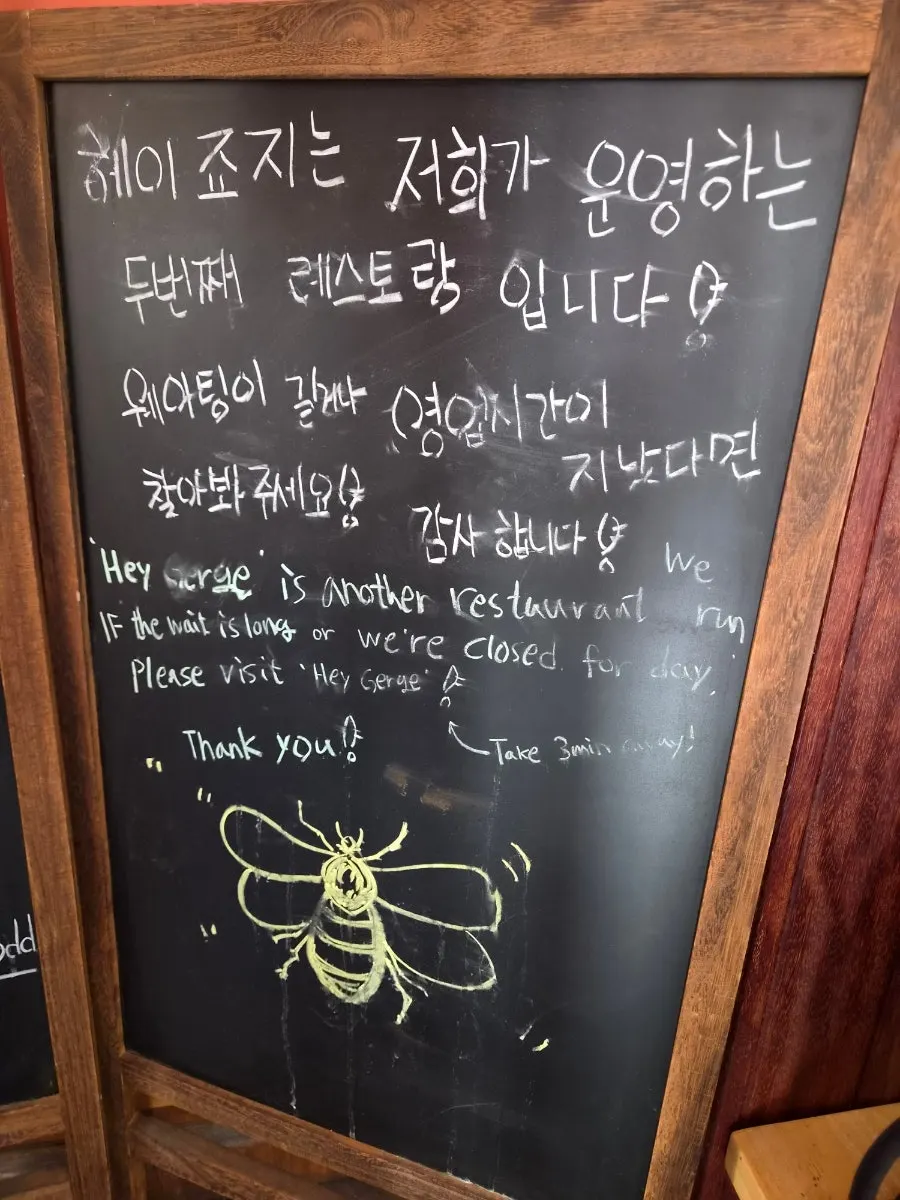 헤이 죠지는 저희가 운영하는
두번째 레스토랑 입니다!
웨이팅이 길거나 영업시간이
지났다면
찾아봐 주세요!
감사 합니다!
'Hey Gerge' is another restaurant We run
IF the wait is long or we're closed for day,
Please visit 'Hey Gerge'!
Thank you!
Take 3min away!
odd